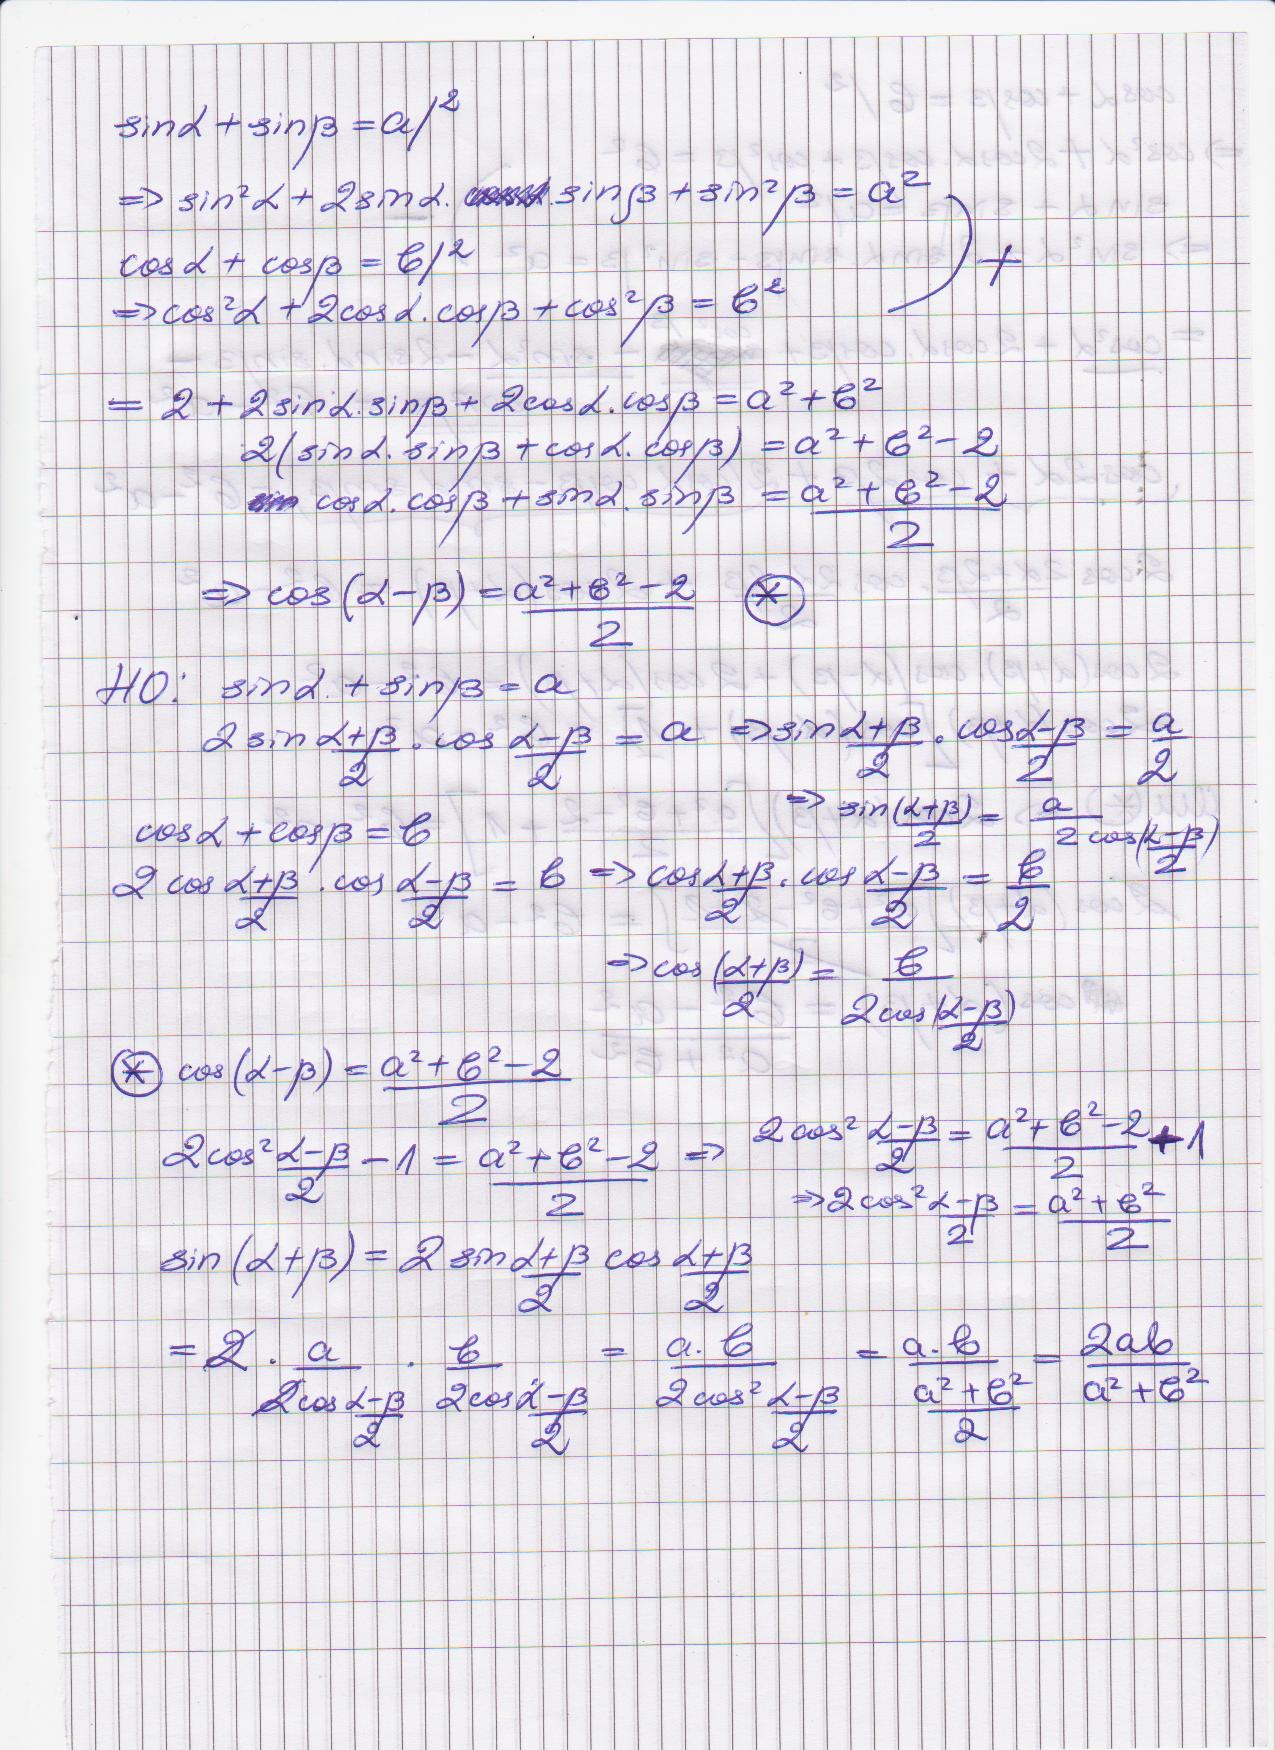 sinα + sinβ = a /²
=> sin²α + 2sinα. sinβ + sin²β = a²
cosα + cosβ = b /²
=> cos²α + 2cosα.cosβ + cos²β = b²
+
= 2 + 2sinα.sinβ + 2cosα.cosβ = a² + b²
2(sinα.sinβ + cosα.cosβ) = a² + b² - 2
cosα.cosβ + sinα.sinβ = (a² + b² - 2)/2
=> cos(α-β) = (a² + b² - 2)/2 ⊛
НО: sinα + sinβ = a
2 sin (α+β)/2 . cos (α-β)/2 = a => sin (α+β)/2 . cos (α-β)/2 = a/2
=> sin (α+β)/2 = a/(2 cos (α-β)/2)
cosα + cosβ = b
2 cos (α+β)/2 . cos (α-β)/2 = b => cos (α+β)/2 . cos (α-β)/2 = b/2
=> cos (α+β)/2 = b/(2cos (α-β)/2)
⊛ cos(α-β) = (a² + b² - 2)/2
2cos² (α-β)/2 - 1 = (a² + b² - 2)/2 => 2cos² (α-β)/2 = (a² + b² - 2)/2 + 1
=> 2cos² (α-β)/2 = (a² + b²)/2
sin(α+β) = 2 sin (α+β)/2 cos (α+β)/2
= 2 . a/(2cos (α-β)/2) . b/(2cos (α-β)/2) = a.b/(2cos² (α-β)/2) = a.b/((a² + b²)/2) = 2ab/(a² + b²)